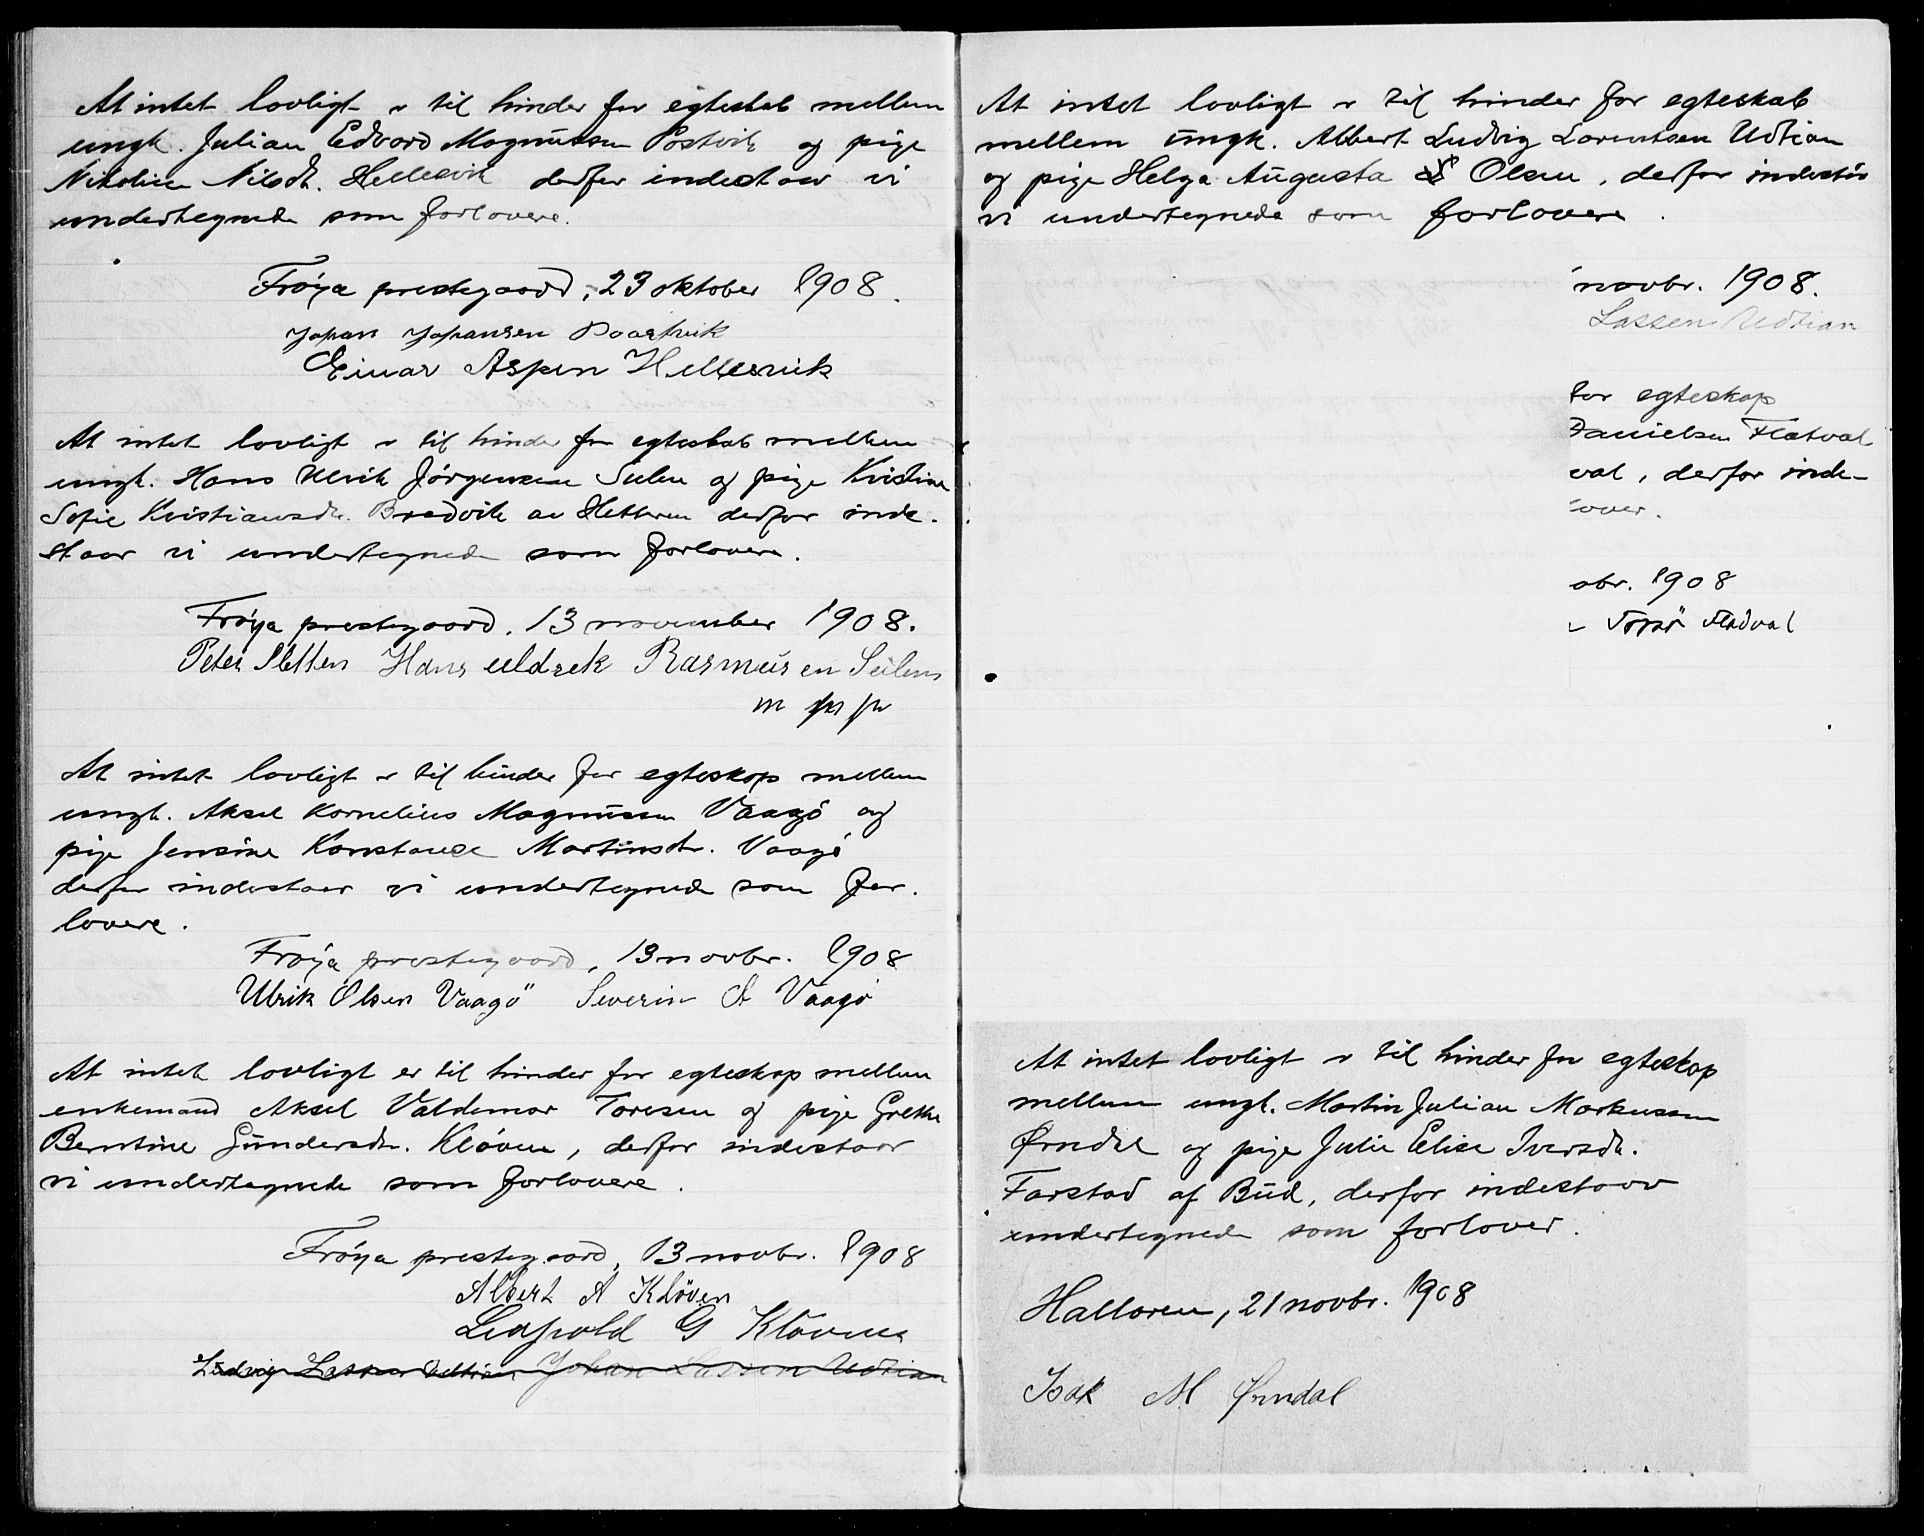 At intet lovligt er til hinder for egteskab mellem
ungk. Julian Edvard Magnussen Postvik og pige
Nikoline Nilsdt. Hellesvik derfor indestaar vi
undertegnede som forlovere.
Frøya prestegaard, 23 oktober 1908.
Johan Johansen Paastvik
Einar Aspen Hellesvik
At intet lovligt er til hinder for egteskab mellem
ungk. Hans Ulrik Jörgensen Sulen og pige Kristine
Sofie Kristiansdt. Bredvik av Hitteren derfor inde-
staar vi undertegnede som forlovere.
Frøya prestegaard, 13 november 1908.
Peter Sletten Hans Uldrek Rasmusen Seulens
m p p
At intet lovligt er til hinder for egteskap mellem
ungk. Aksel Kornelius Magnussen Vaagö og
pige Jensine Konstanse Martinsdtr. Vaagö
derfor indestaar vi undertegnede som for-
lovere.
Frøya prestegaard, 13 novbr. 1908
Ulrik Olsen Vaagö Severin A Vaagö
At intet lovligt er til hinder for egteskap mellem
enkemand Aksel Valdemar Toresen og pige Grethe
Berntine Gundersdtr. Kløven, derfor indestaar
vi undertegnede som forlovere.
Frøya prestegaard, 13 novbr. 1908
Albert A Kløven
Leopold G Kløven
Ludvig Lassen Udtian Johan Lassen Udtian
At intet lovligt er til hinder for egteskab
mellem ungk. Albert Ludvig Lorentsen Udtian
og pige Helga Augusta Olsen, derfor indestår
vi undertegnede som forlovere.
novbr. 1908.
Lassen Udtian
for egteskap
Danielsen Flatval
val, derfor inde-
over.
obr. 1908
Fladval
At intet lovligt er til hinder for egteskap
mellem ungk. Martin Julian Markussen
Ørndal og pige Julie Elise Iversdt.
Farstad af Bud, derfor indestaar
undertegnede som forlover.
Halloren, 21 novbr. 1908
Isak M Ørndal